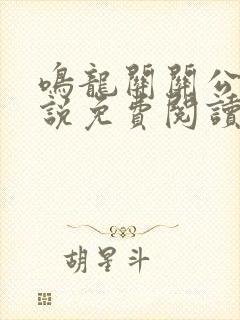 鳴龍開關公
說免費閱讀
胡星斗